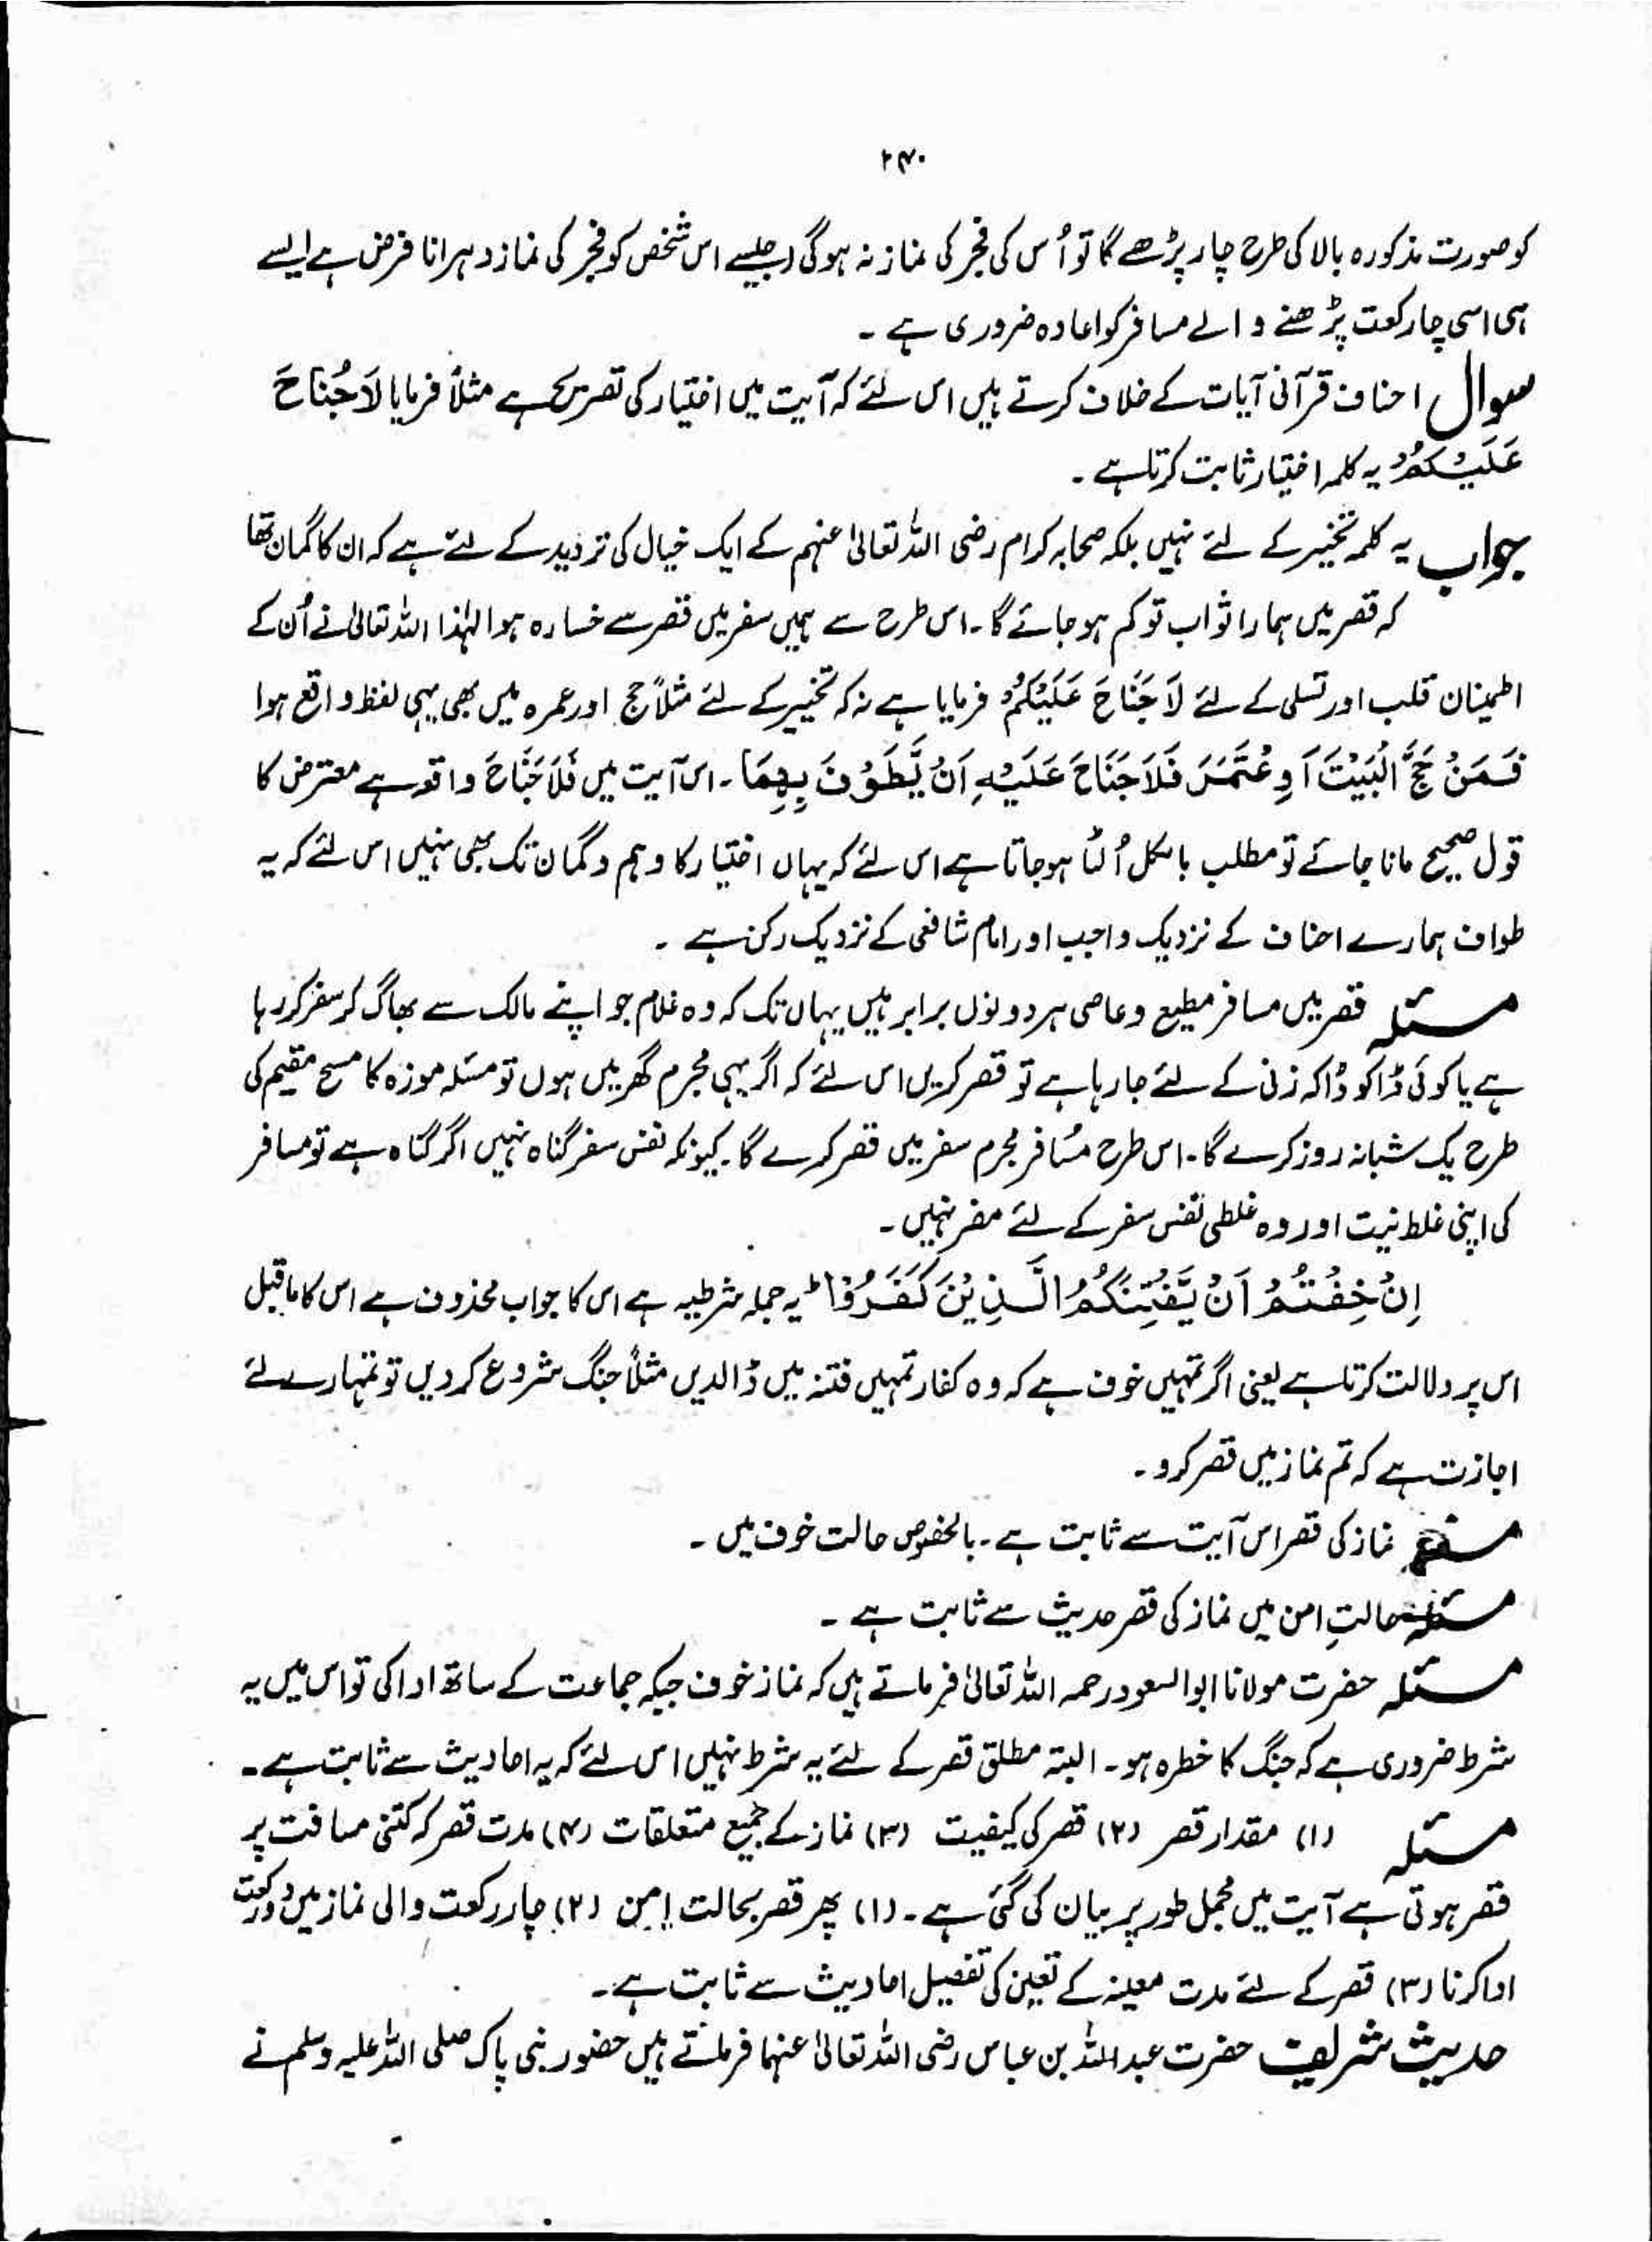 ۲۴۰
کو صورت مذکورہ بالا کی طرح چار پڑھے گا تو اُس کی فجر کی نماز نہ ہوگی (جیسے اس شخص کو فجر کی نماز دہرانا فرض ہے ایسے
ہی اسی چار رکعت پڑھنے والے مسافر کو اعادہ ضروری ہے ۔
سوال احناف قرآنی آیات کے خلاف کرتے ہیں اس لئے کہ آیت میں اختیار کی تصریح ہے مثلاً فرمایا لَاجُنَاحَ
عَلَيْكُمْ یہ کلمہ اختیار ثابت کرتا ہے ۔
جواب یہ کلمہ تخییر کے لئے نہیں بلکہ صحابہ کرام رضی اللہ تعالیٰ عنہم کے ایک خیال کی تردید کے لئے ہے کہ ان کا گمان تھا
کہ قصر میں ہمارا ثواب تو کم ہو جائے گا ۔ اس طرح سے ہمیں سفر میں قصر سے خسارہ ہوا لہٰذا اللہ تعالیٰ نے اُن کے
اطمینان قلب اور تسلی کے لئے لَا جَنَاحَ عَلَيْكُمْ فرمایا ہے نہ کہ تخییر کے لئے مثلاً حج اور عمرہ میں بھی یہی لفظ واقع ہوا
فَمَنْ حَجَّ الْبَيْتَ اَوِعْتَمَرَ فَلَاجَنَاحَ عَلَيْهِ اَنْ يَّطَوَّفَ بِهِمَا ۔ اس آیت میں فَلَاجَنَاحَ واقع ہے معترض کا
قول صحیح مانا جائے تو مطلب بالکل اُلٹا ہو جاتا ہے اس لئے کہ یہاں اختیار کا وہم و گمان تک بھی نہیں اس لئے کہ یہ
طواف ہمارے احناف کے نزدیک واجب اور امام شافعی کے نزدیک رکن ہے ۔
مسئلہ قصر میں مسافر مطیع و عاصی ہر دونوں برابر ہیں یہاں تک کہ وہ غلام جو اپنے مالک سے بھاگ کر سفر کر رہا
ہے یا کوئی ڈاکو ڈاکہ زنی کے لئے جا رہا ہے تو قصر کریں اس لئے کہ اگر یہی مجرم گھر میں ہوں تو مسئلہ موزہ کا مسح مقیم کی
طرح یک شبانہ روز کرے گا ۔ اس طرح مُسافر مجرم سفر میں قصر کرے گا ۔ کیونکہ نفس سفر گناہ نہیں اگر گناہ ہے تو مسافر
کی اپنی غلط نیت اور وہ غلطی نفس سفر کے لئے مضر نہیں ۔
اِنْ خِفْتُمْ اَنْ يَّفْتِنَكُمُ الَّذِيْنَ كَفَرُوْا ط یہ جملہ شرطیہ ہے اس کا جواب محذوف ہے اس کا ماقبل
اس پر دلالت کرتا ہے یعنی اگر تمہیں خوف ہے کہ وہ کفار تمہیں فتنہ میں ڈالدیں مثلاً جنگ شروع کر دیں تو تمہارے لئے
اجازت ہے کہ تم نماز میں قصر کرو ۔
مسئلہ نماز کی قصر اس آیت سے ثابت ہے ۔ بالخصوص حالت خوف میں ۔
مسئلہ حالتِ امن میں نماز کی قصر حدیث سے ثابت ہے ۔
مسئلہ حضرت مولانا ابوالسعود رحمہ اللہ تعالیٰ فرماتے ہیں کہ نماز خوف جبکہ جماعت کے ساتھ ادا کی تو اس میں یہ
شرط ضروری ہے کہ جنگ کا خطرہ ہو ۔ البتہ مطلق قصر کے لئے یہ شرط نہیں اس لئے کہ یہ احادیث سے ثابت ہے ۔
مسئلہ (۱) مقدار قصر (۲) قصر کی کیفیت (۳) نماز کے جمیع متعلقات (۴) مدت قصر کہ کتنی مسافت پر
قصر ہوتی ہے آیت میں مجمل طور پر بیان کی گئی ہے ۔ (۱) پھر قصر بحالت امن (۲) چار رکعت والی نماز میں دو رکعت
ادا کرنا (۳) قصر کے لئے مدت معینہ کے تعین کی تفصیل احادیث سے ثابت ہے ۔
حدیث شریف حضرت عبداللہ بن عباس رضی اللہ تعالیٰ عنہما فرماتے ہیں حضور نبی پاک صلی اللہ علیہ وسلم نے